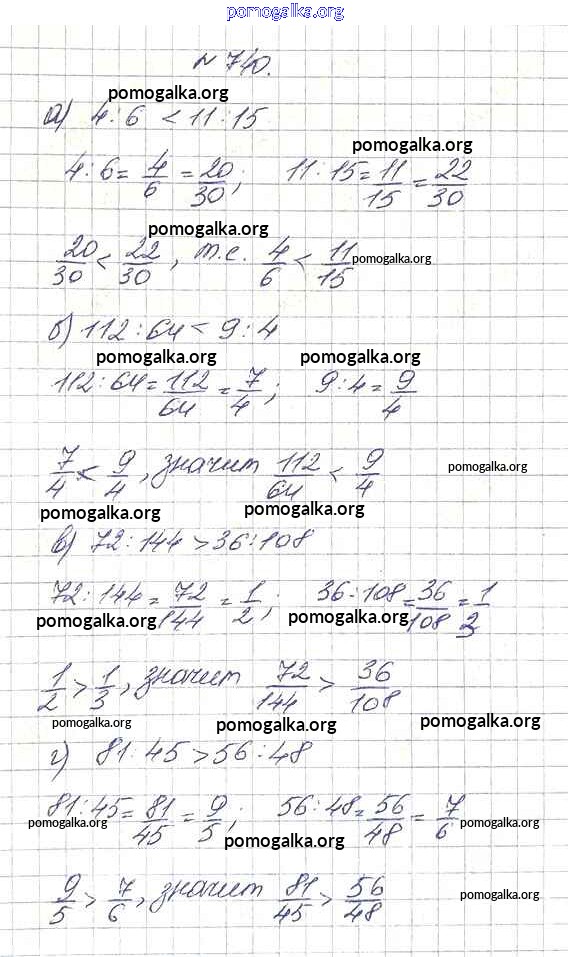 pomogalka.org
№740.
pomogalka.org
а) 4:6 < 11:15
pomogalka.org
4:6 = 4/6 = 20/30; 11:15 = 11/15 = 22/30
pomogalka.org
20/30 < 22/30, т.е. 4/6 < 11/15 pomogalka.org
б) 112:64 < 9:4
pomogalka.org pomogalka.org
112:64 = 112/64 = 7/4; 9:4 = 9/4
7/4 < 9/4, значит 112/64 < 9/4 pomogalka.org
pomogalka.org pomogalka.org
в) 72:144 > 36:108
72:144 = 72/144 = 1/2; 36:108 = 36/108 = 1/3
pomogalka.org pomogalka.org
1/2 > 1/3, значит 72/144 > 36/108
pomogalka.org pomogalka.org pomogalka.org
г) 81:45 > 56:48
81:45 = 81/45 = 9/5; 56:48 = 56/48 = 7/6
pomogalka.org pomogalka.org
pomogalka.org
9/5 > 7/6, значит 81/45 > 56/48 pomogalka.org